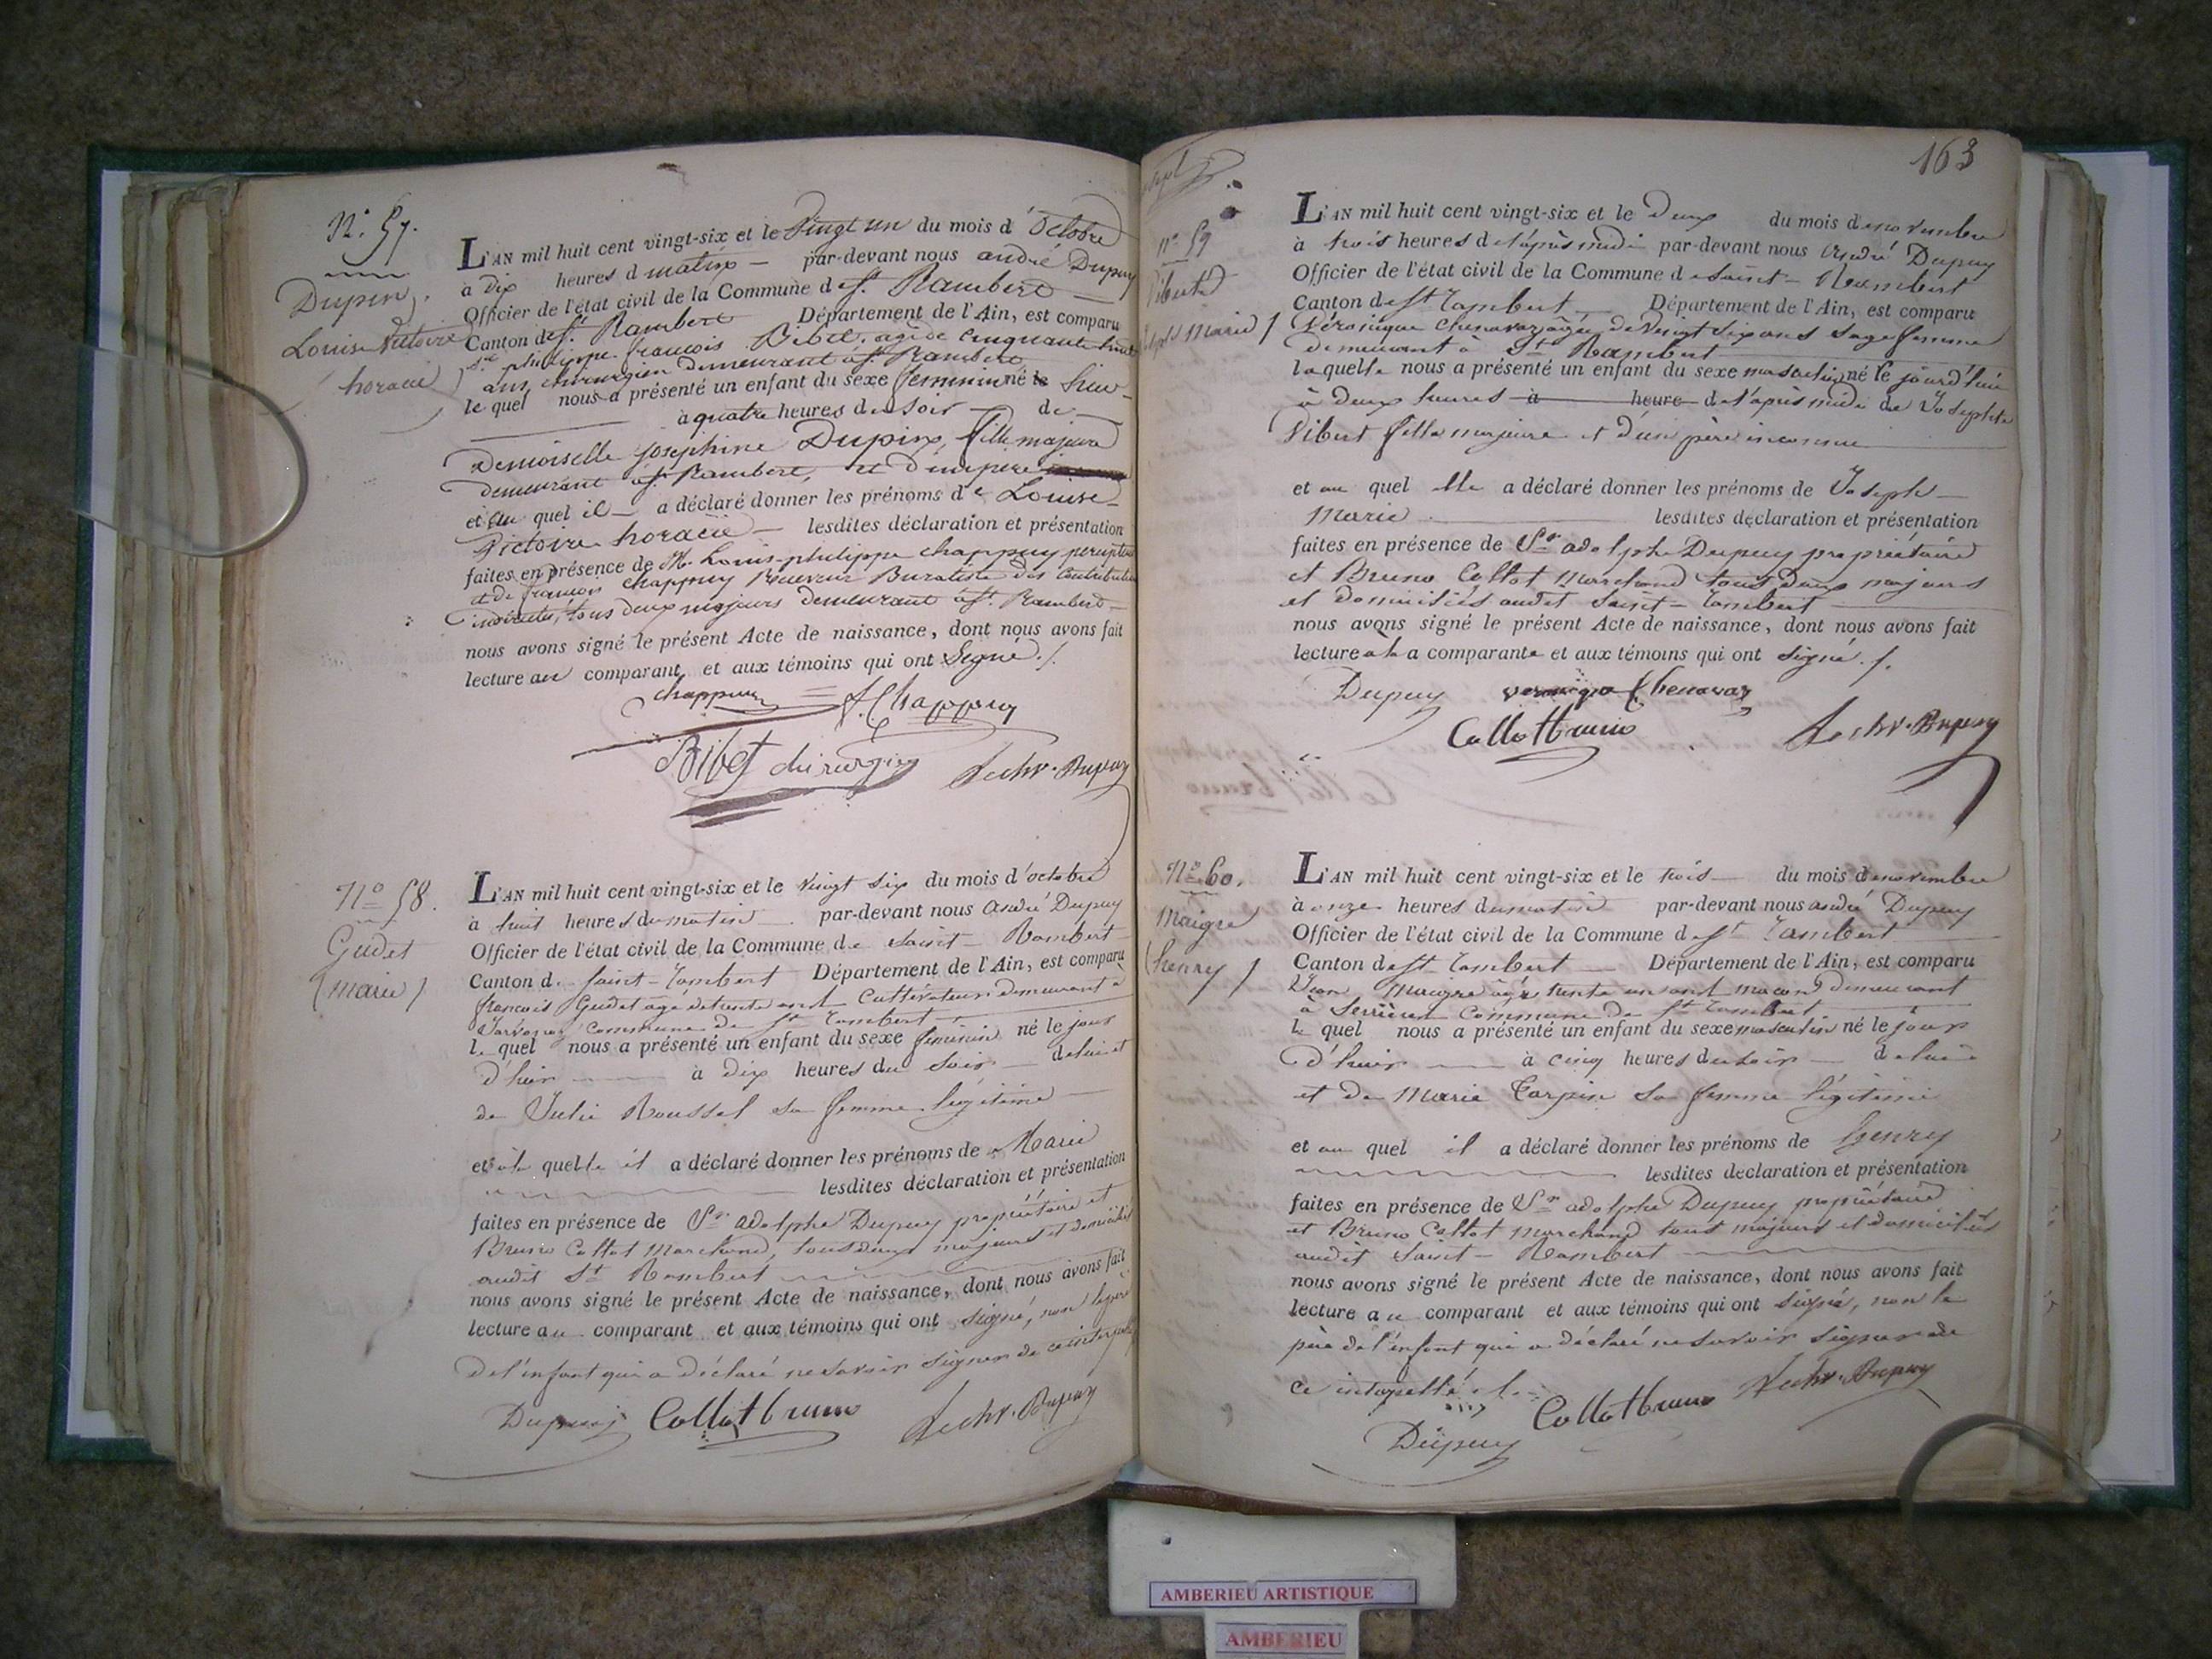 N.° 57.
Dupin,
Louise Victoire
horacie
L'AN mil huit cent vingt-six et le Vingt un du mois d'Octobre
à dix heures d matin par-devant nous andré Dupuy
Officier de l'état civil de la Commune de St. Rambert
Canton de St. Rambert Département de l'Ain, est comparu
Sr. philippe françois Bibet, agé de cinquante huit
ans, chirurgien demeurant à St. Rambert
le quel nous a présenté un enfant du sexe feminin né le hier
à quatre heures du soir de
Demoiselle josephine Dupin, fille majeure
demeurant à St. Rambert, et d'un père
et au quel il a déclaré donner les prénoms de Louise
Victoire horacie lesdites déclaration et présentation
faites en présence de M. Louis-philippe chappuy percepteur
et de françois chappuy Receveur Buraliste des Contributions
indirectes, tous deux majeurs demeurant à St. Rambert
nous avons signé le présent Acte de naissance, dont nous avons fait
lecture au comparant et aux témoins qui ont Signé ./.
chappuy F. Chappuy
Bibet chirurgien Dupuy
N° 58.
Gudet
(marie)
L'AN mil huit cent vingt-six et le vingt six du mois d'octobre
à huit heures du matin par-devant nous andré Dupuy
Officier de l'état civil de la Commune de Saint-Rambert
Canton de Saint-Rambert Département de l'Ain, est comparu
françois Gudet agé de trente ans Cultivateur demeurant à
commune de St Rambert
le quel nous a présenté un enfant du sexe féminin né le jour
d'hier à dix heures du soir de lui et
de Julie Roussel sa femme légitime
et à la quelle il a déclaré donner les prénoms de Marie
lesdites déclaration et présentation
faites en présence de Sr. adolphe Dupuy propriétaire et
Bruno Collot Marchand, tous deux majeurs et domiciliés
audit St Rambert
nous avons signé le présent Acte de naissance, dont nous avons fait
lecture au comparant et aux témoins qui ont signé, non le père
de l'enfant qui a déclaré ne savoir signer de ce interpellé
Dupuy Collot bruno Dupuy
163
n° 59
Vibert
Joseph Marie
L'AN mil huit cent vingt-six et le Deux du mois de novembre
à trois heures de l'après midi par-devant nous André Dupuy
Officier de l'état civil de la Commune de Saint-Rambert
Canton de St Rambert Département de l'Ain, est comparu
Véronique Chenavaz âgée de Vingt six ans Sage femme
demeurant à St Rambert
laquelle nous a présenté un enfant du sexe masculin né le jourd'hui
à deux heures à heure de l'après midi de Josephte
Vibert fille majeure et d'un père inconnu
et au quel elle a déclaré donner les prénoms de Joseph
Marie lesdites déclaration et présentation
faites en présence de Sr. adolphe Dupuy propriétaire
et Bruno Collot Marchand tous Deux majeurs
et domiciliés audit Saint-Rambert
nous avons signé le présent Acte de naissance, dont nous avons fait
lecture à la comparante et aux témoins qui ont signé ./.
Dupuy veronique Chenavaz
Collot bruno Dupuy
N° 60.
Maigre
(henry)
L'AN mil huit cent vingt-six et le trois du mois de novembre
à onze heures du matin par-devant nous andré Dupuy
Officier de l'état civil de la Commune de St Rambert
Canton de St Rambert Département de l'Ain, est comparu
Jean Maigre agé trente un ans maçon demeurant
à Serrières Commune de St Rambert
le quel nous a présenté un enfant du sexe masculin né le jour
d'hier à cinq heures du soir de lui
et de Marie Carpin sa femme légitime
et au quel il a déclaré donner les prénoms de henry
lesdites déclaration et présentation
faites en présence de Sr. adolphe Dupuy propriétaire
et Bruno Collot Marchand tous majeurs et domiciliés
audit Saint-Rambert
nous avons signé le présent Acte de naissance, dont nous avons fait
lecture au comparant et aux témoins qui ont signé, non le
père de l'enfant qui a déclaré ne savoir signer de
ce interpellé
Collot bruno Dupuy
Dupuy
AMBERIEU ARTISTIQUE
AMBERIEU